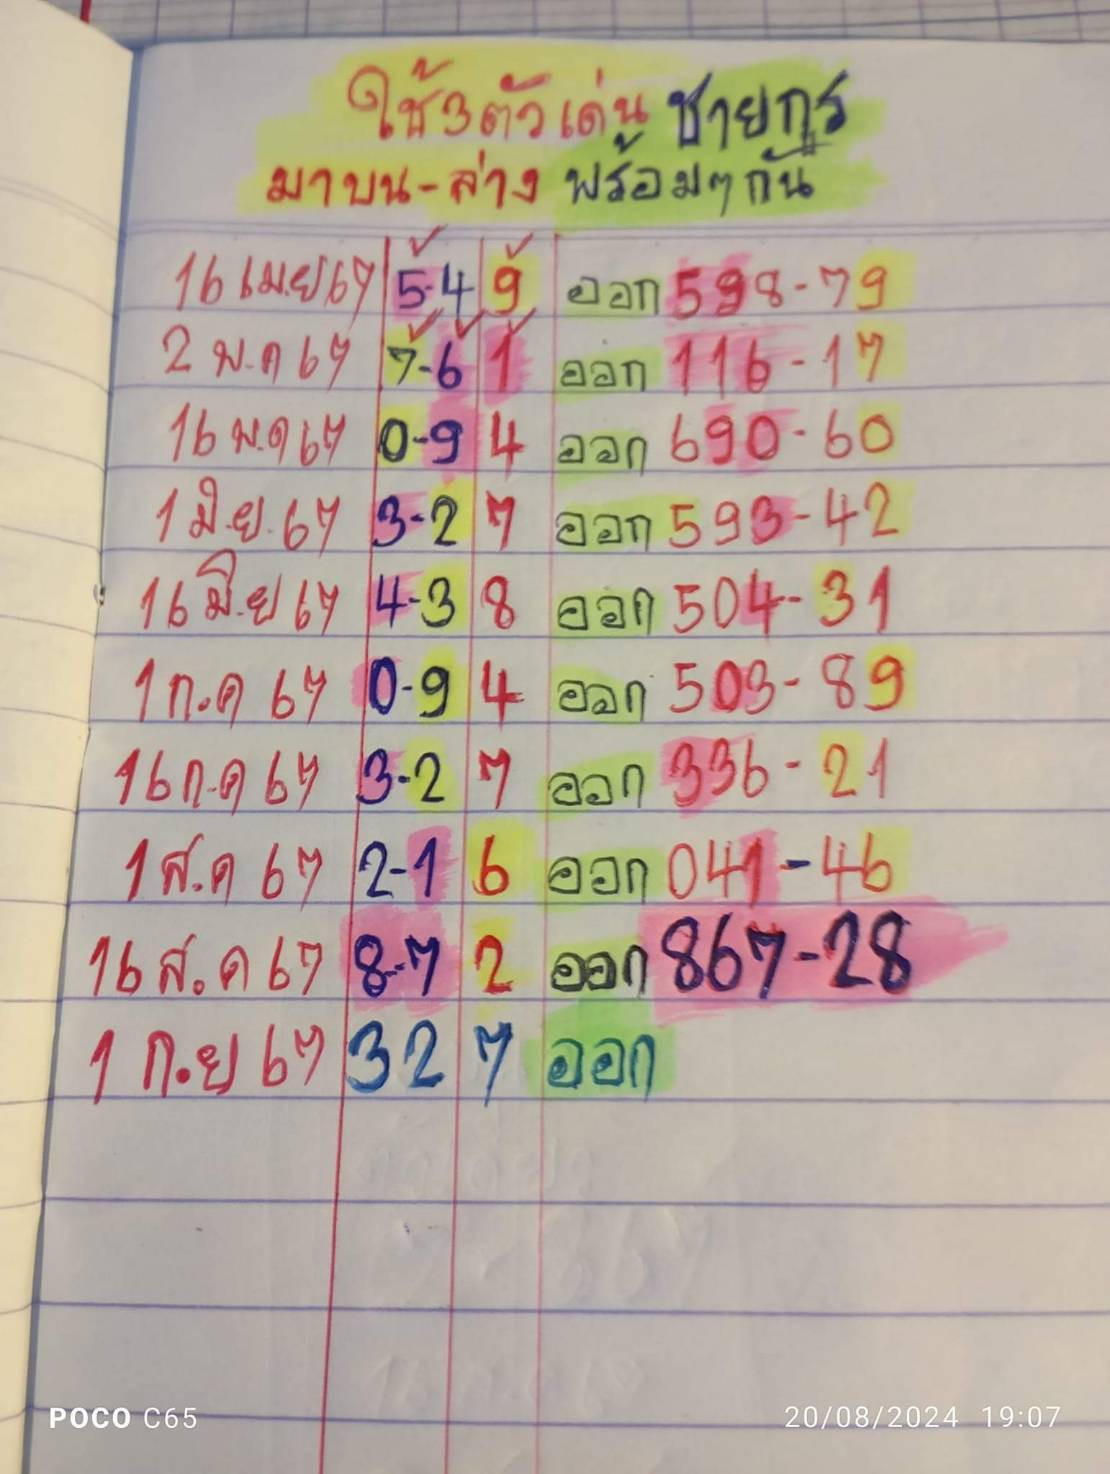 ใช้3ตัวเด่น ชายกูร
มาบน-ล่าง พร้อมๆกัน
16 เม.ย67 5-4 9 ออก 598-79
2 พ.ค 67 7-6 1 ออก 116-17
16 พ.ค 67 0-9 4 ออก 690-60
1 มิ.ย.67 3-2 7 ออก 593-42
16 มิ.ย 67 4-3 8 ออก 504-31
1 ก.ค 67 0-9 4 ออก 503-89
16 ก.ค 67 3-2 7 ออก 336-21
1 ส.ค 67 2-1 6 ออก 041-46
16 ส.ค 67 8-7 2 ออก 867-28
1 ก.ย 67 32 7 ออก
POCO C65 20/08/2024 19:07